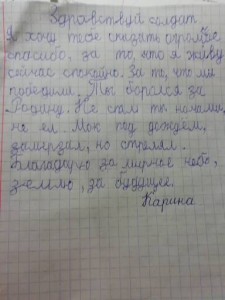 Здравствуй солдат
Я хочу тебе сказать огромное
спасибо, за то, что я живу
сейчас спокойно. За то, что мы
победили. Ты боролся за
Родину. Не спал ты ночами,
не ел. Мок под дождём,
замерзал, но стрелял.
Благодарю за мирное небо,
землю, за будущее.
Карина